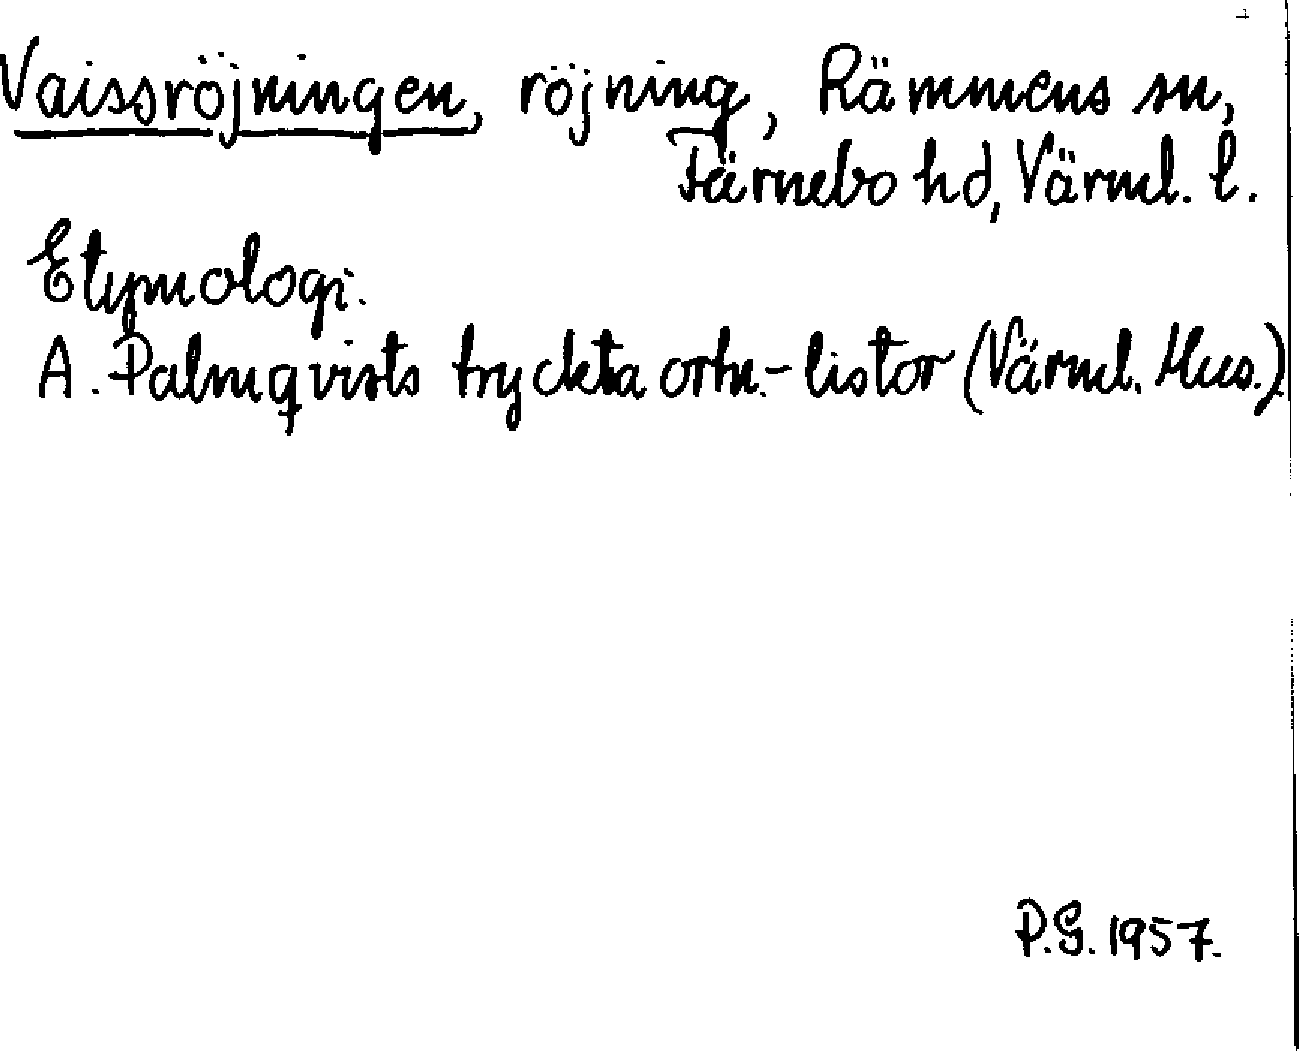 Vaissröjningen, röjning, Rämmens sn,
Färnebo hd, Värml. l.
Etymologi.
A. Palmqvists tryckta ortn.-listor (Värml. Mus.)
P.G. 1957.